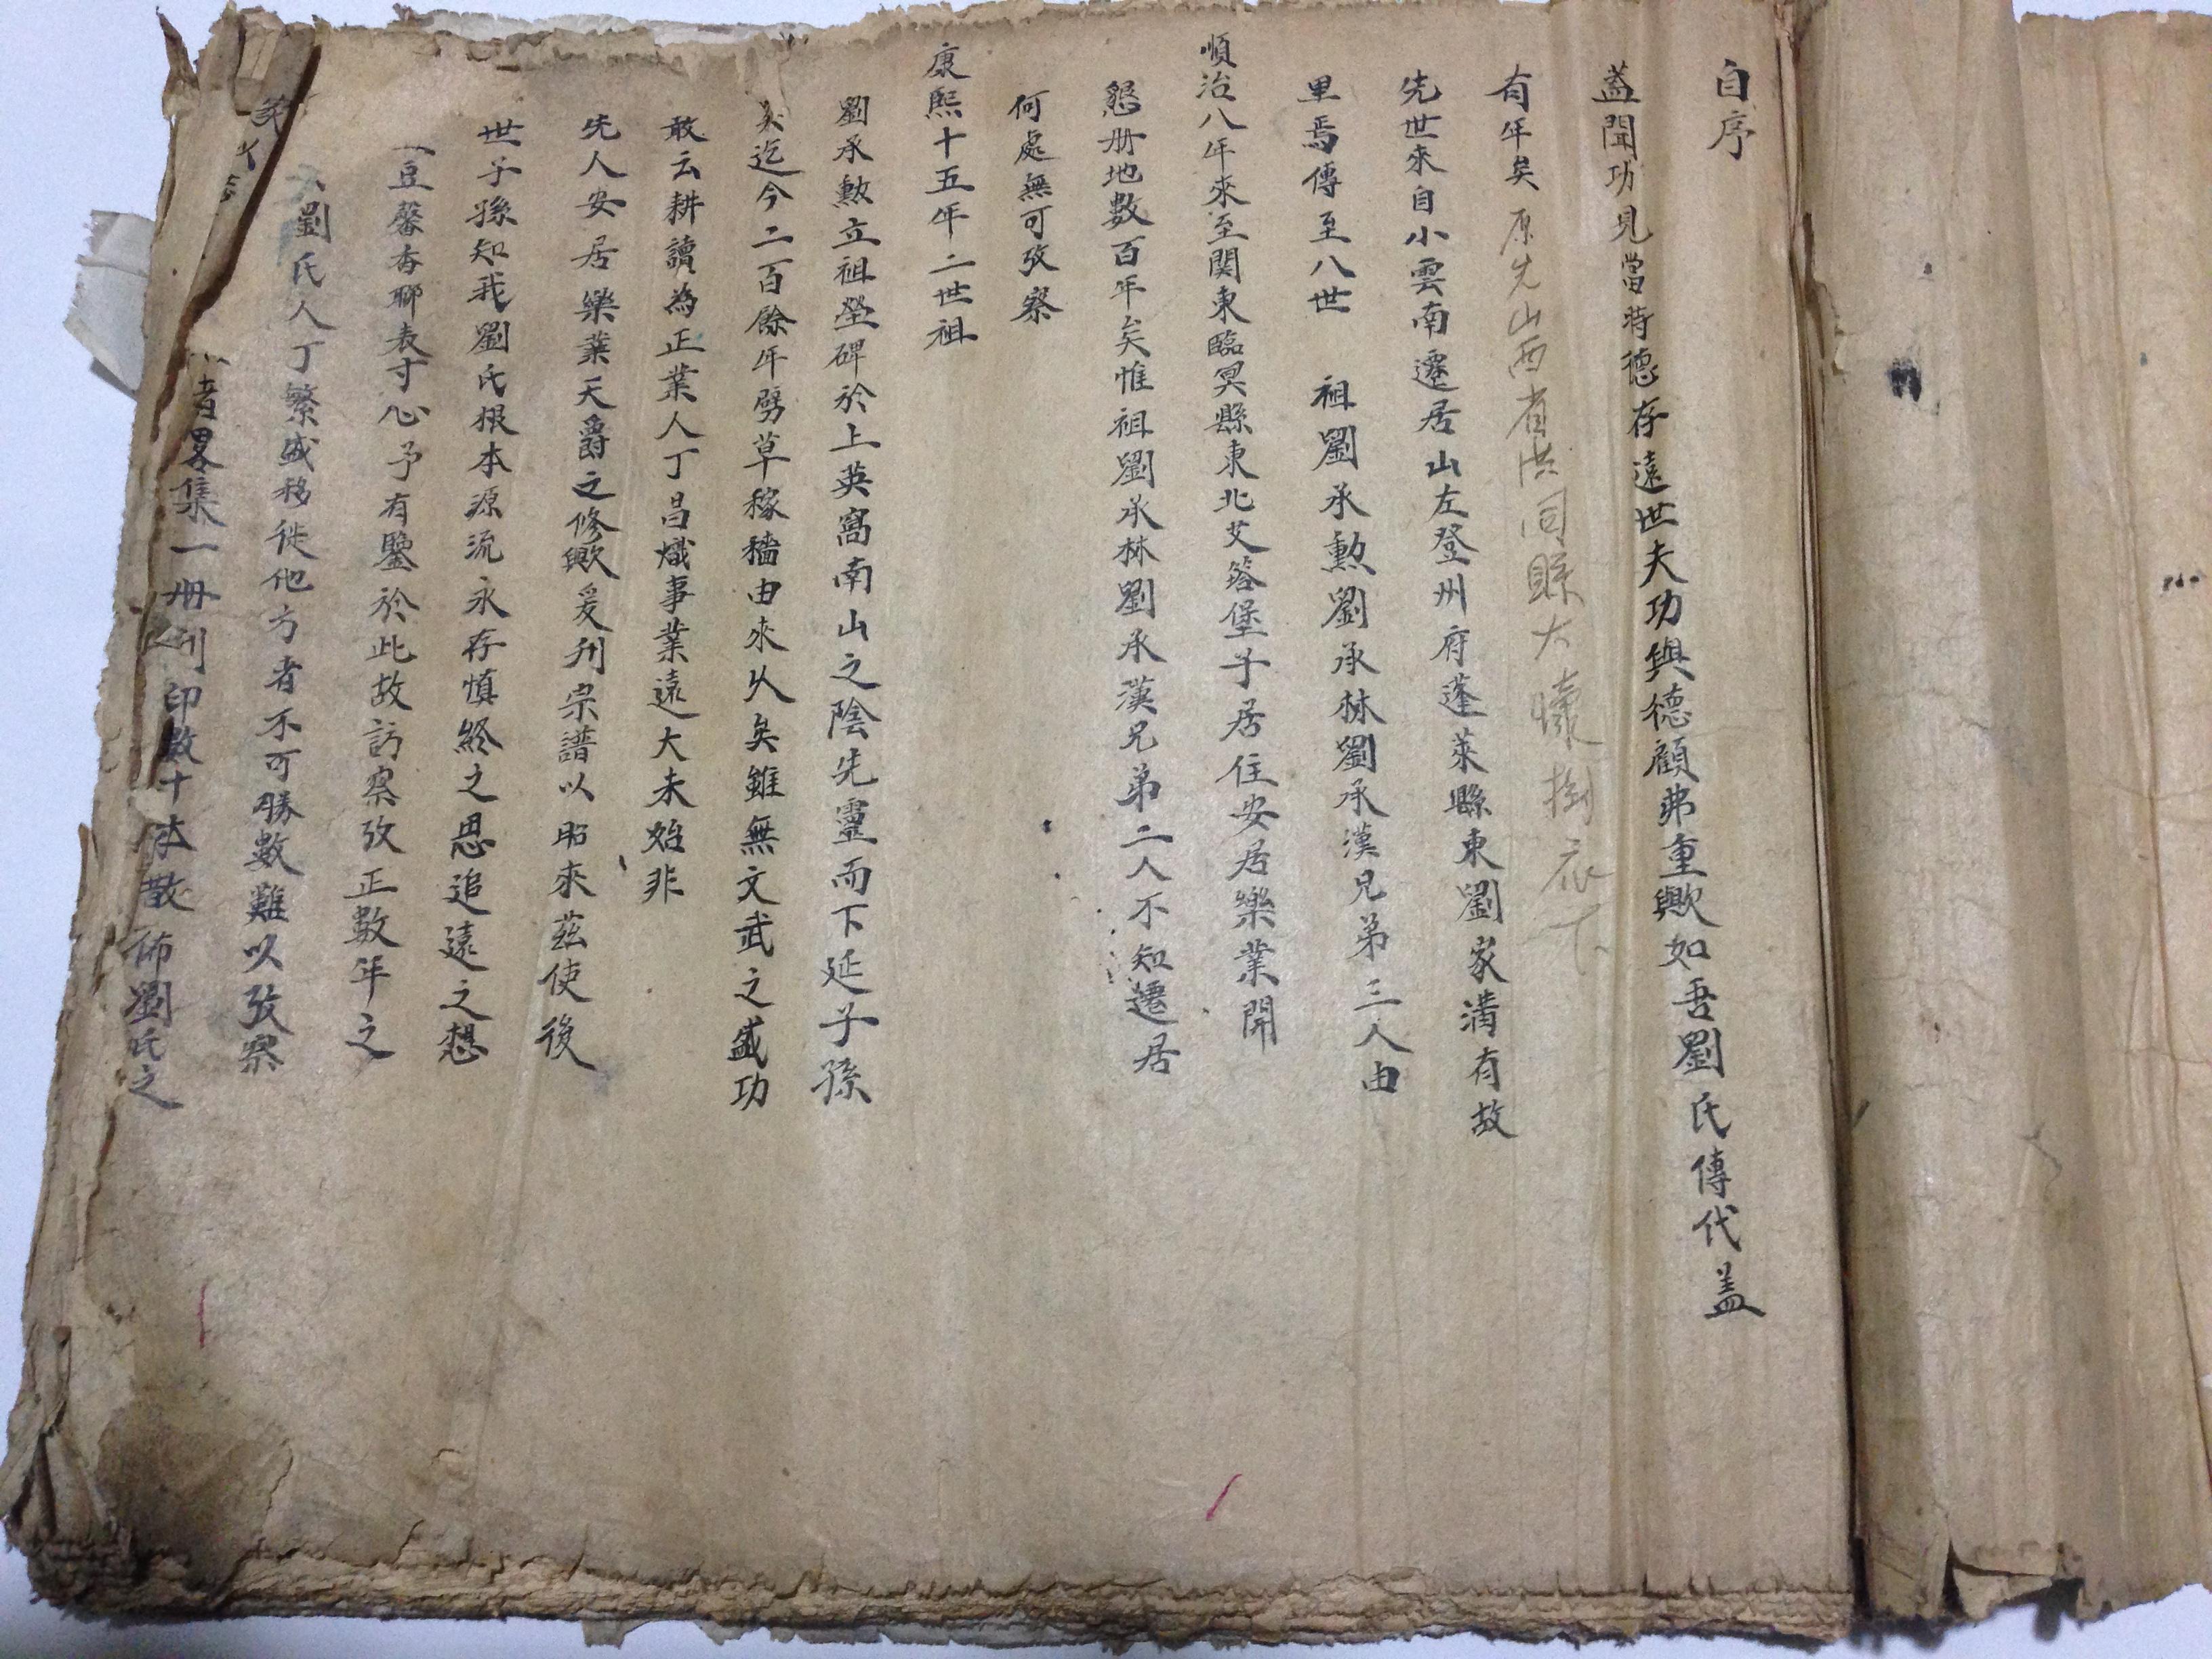 自序
蓋聞功見當時德存遠世夫功與德顧弗重歟如吾劉氏傳代蓋
有年矣 原先山西省洪同縣大懷樹底下
先世來自小雲南遷居山左登州府蓬萊縣東劉家溝有故
里焉傳至八世 祖劉承勲劉承林劉承漢兄弟三人由
順治八年來至関東臨冥縣東北艾筂堡子居住安居樂業開
懇册地數百年矣惟祖劉承林劉承漢兄弟二人不知遷居
何處無可攷察
康熙十五年二世祖
劉承勲立祖塋碑於上英窩南山之陰先靈而下延子孫
矣迄今二百餘年劈草稼穡由來久矣雖無文武之盛功
敢云耕讀為正業人丁昌熾事業遠大未始非
先人安居樂業天爵之修歟爰刋宗譜以昭來茲使後
世子孫知我劉氏根本源流永存慎終之思追遠之想
豆馨香聊表寸心予有鑒於此故訪察攷正數年之
劉氏人丁繁盛移徙他方者不可勝數難以攷察
者畧集一册刋印數十本散佈劉氏之